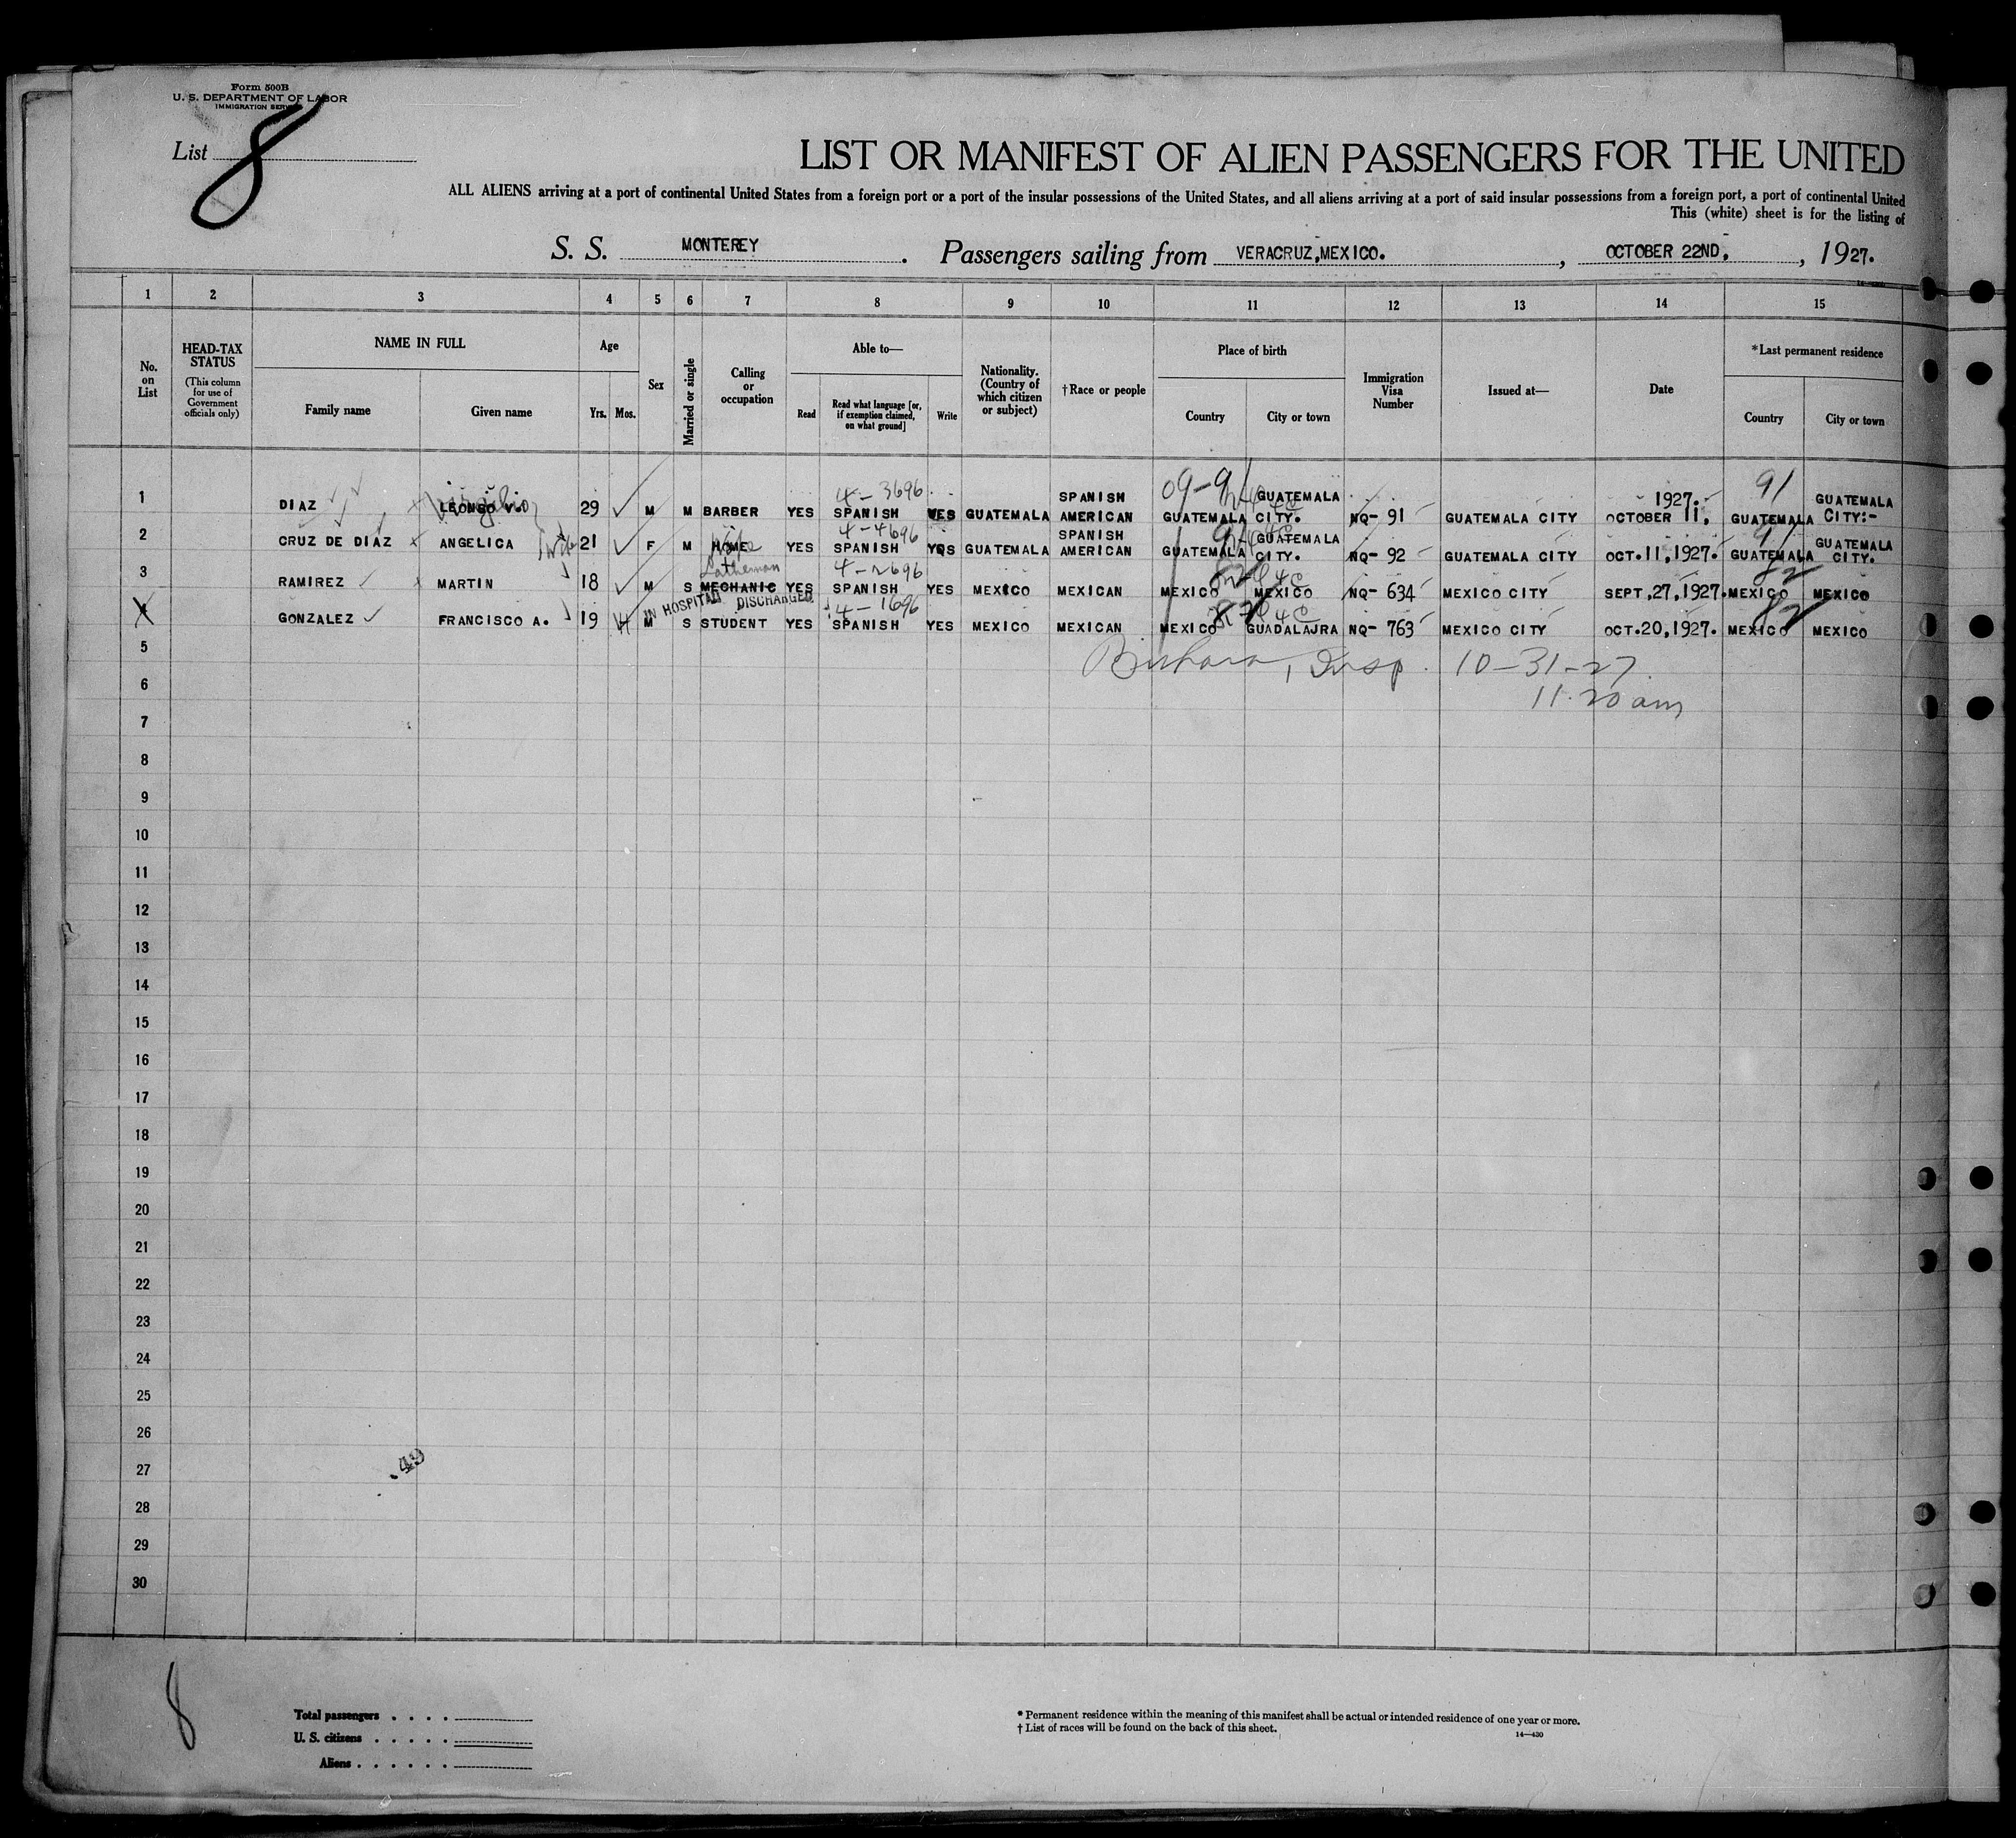 Form 500B
U. S. DEPARTMENT OF LABOR
IMMIGRATION SERVICE
List 8
LIST OR MANIFEST OF ALIEN PASSENGERS FOR THE UNITED
ALL ALIENS arriving at a port of continental United States from a foreign port or a port of the insular possessions of the United States, and all aliens arriving at a port of said insular possessions from a foreign port, a port of continental United
This (white) sheet is for the listing of
S. S. MONTEREY. Passengers sailing from VERACRUZ,MEXICO., OCTOBER 22ND, , 1927.
14-430
1 2 3 4 5 6 7 8 9 10 11 12 13 14 15
No. on List
HEAD-TAX STATUS
(This column for use of Government officials only)
NAME IN FULL
Family name Given name
Age
Yrs. Mos.
Sex
Married or single
Calling or occupation
Able to—
Read
Read what language [or, if exemption claimed, on what ground]
Write
Nationality. (Country of which citizen or subject)
†Race or people
Place of birth
Country City or town
Immigration Visa Number
Issued at—
Date
*Last permanent residence
Country City or town
4-3696 09-91 91
1 DIAZ LEONSO V. Virgilio 29 M M BARBER YES SPANISH YES GUATEMALA SPANISH AMERICAN GUATEMALA GUATEMALA CITY. NQ- 91 GUATEMALA CITY 1927. OCTOBER 11, GUATEMALA GUATEMALA CITY:-
4-4696 91 91
2 CRUZ DE DIAZ ANGELICA Wife 21 F M HOME Wife YES SPANISH YES GUATEMALA SPANISH AMERICAN GUATEMALA GUATEMALA CITY. NQ- 92 GUATEMALA CITY OCT.11,1927. GUATEMALA GUATEMALA CITY.
Latheman 4-2696 82 82
3 RAMIREZ MARTIN 18 M S MECHANIC YES SPANISH YES MEXICO MEXICAN MEXICO MEXICO NQ- 634 MEXICO CITY SEPT.27,1927. MEXICO MEXICO
IN HOSPITAL DISCHARGED 4-1696 82 82
4 GONZALEZ FRANCISCO A. 19 M S STUDENT YES SPANISH YES MEXICO MEXICAN MEXICO GUADALAJRA NQ- 763 MEXICO CITY OCT.20,1927. MEXICO MEXICO
5 Insp. 10-31-27
6 11.20 am
7
8
9
10
11
12
13
14
15
16
17
18
19
20
21
22
23
24
25
26
27
49
28
29
30
8
Total passengers
U. S. citizens
Aliens
*Permanent residence within the meaning of this manifest shall be actual or intended residence of one year or more.
†List of races will be found on the back of this sheet.
14—430